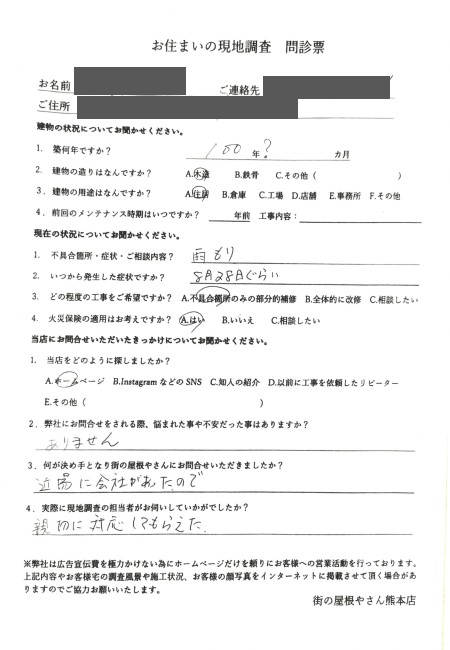 お住まいの現地調査 問診票
お名前
ご連絡先
ご住所
建物の状況についてお聞かせください。
1. 築何年ですか? 100年? カ月
2. 建物の造りはなんですか? A.木造 B.鉄骨 C.その他( )
3. 建物の用途はなんですか? A.住居 B.倉庫 C.工場 D.店舗 E.事務所 F.その他
4. 前回のメンテナンス時期はいつですか? 年前 工事内容:
現在の状況についてお聞かせください。
1. 不具合箇所・症状・ご相談内容? 雨もり
2. いつから発生した症状ですか? 8月28日ぐらい
3. どの程度の工事をご希望ですか? A.不具合箇所のみの部分的補修 B.全体的に改修 C.相談したい
4. 火災保険の適用はお考えですか? A.はい B.いいえ C.相談したい
当店にお問合せいただいたきっかけについてお聞かせください。
1. 当店をどのように探しましたか?
A.ホームページ B.Instagram などの SNS C.知人の紹介 D.以前に工事を依頼したリピーター
E.その他( )
2. 弊社にお問合せをされる際、悩まれた事や不安だった事はありますか?
ありません
3. 何が決め手となり街の屋根やさんにお問合せいただきましたか?
近場に会社があたので
4. 実際に現地調査の担当者がお伺いしていかがでしたか?
親切に対応してもらえた.
※弊社は広告宣伝費を極力かけない為にホームページだけを頼りにお客様への営業活動を行っております。
上記内容やお客様宅の調査風景や施工状況、お客様の顔写真をインターネットに掲載させて頂く場合があ
りますのでご協力お願いいたします。
街の屋根やさん熊本店